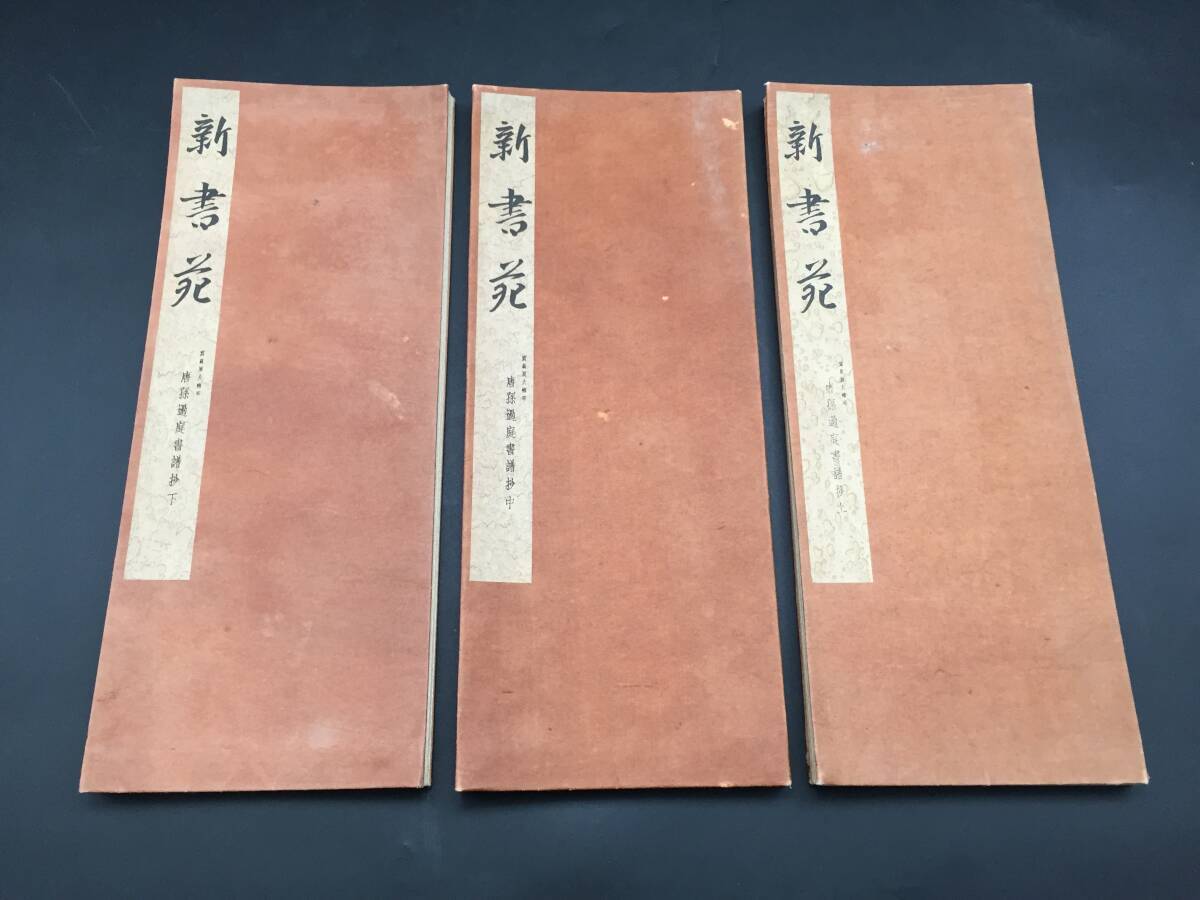 新書苑
唐孫過庭書譜抄下
新書苑
唐孫過庭書譜抄中
新書苑
唐孫過庭書譜抄上